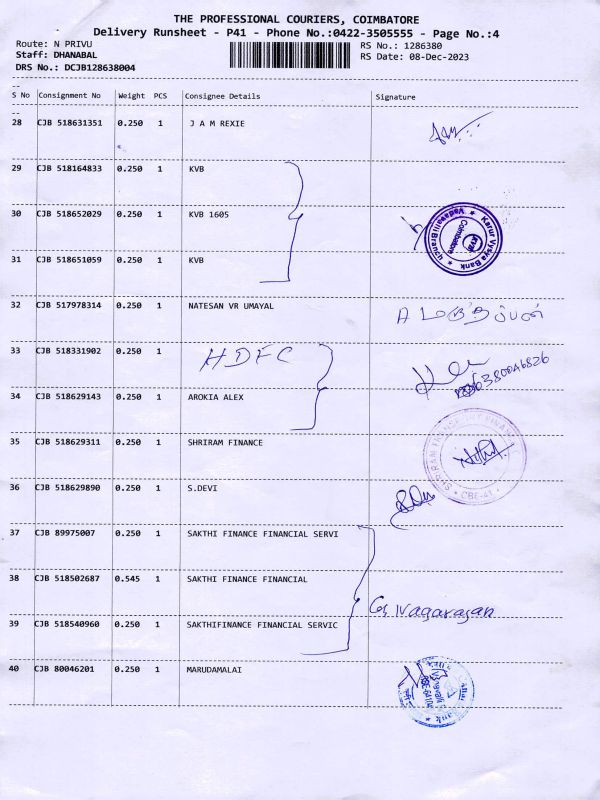 THE PROFESSIONAL COURIERS, COIMBATORE
Delivery Runsheet - P41 - Phone No.:0422-3505555 - Page No.:4
Route: N PRIVU RS No.: 1286380
Staff: DHANABAL RS Date: 08-Dec-2023
DRS No.: DCJB128638004
S No Consignment No Weight PCS Consignee Details Signature
28 CJB 518631351 0.250 1 J A M REXIE
29 CJB 518164833 0.250 1 KVB
30 CJB 518652029 0.250 1 KVB 1605
Karur Vysya Bank
Vadavalli Branch
KVB
Coimbatore
31 CJB 518651059 0.250 1 KVB
32 CJB 517978314 0.250 1 NATESAN VR UMAYAL
33 CJB 518331902 0.250 1 HDFC
6380046826
34 CJB 518629143 0.250 1 AROKIA ALEX
35 CJB 518629311 0.250 1 SHRIRAM FINANCE
CBE-41
36 CJB 518629890 0.250 1 S.DEVI
37 CJB 89975007 0.250 1 SAKTHI FINANCE FINANCIAL SERVI
38 CJB 518502687 0.545 1 SAKTHI FINANCE FINANCIAL
39 CJB 518540960 0.250 1 SAKTHIFINANCE FINANCIAL SERVIC
40 CJB 80046201 0.250 1 MARUDAMALAI